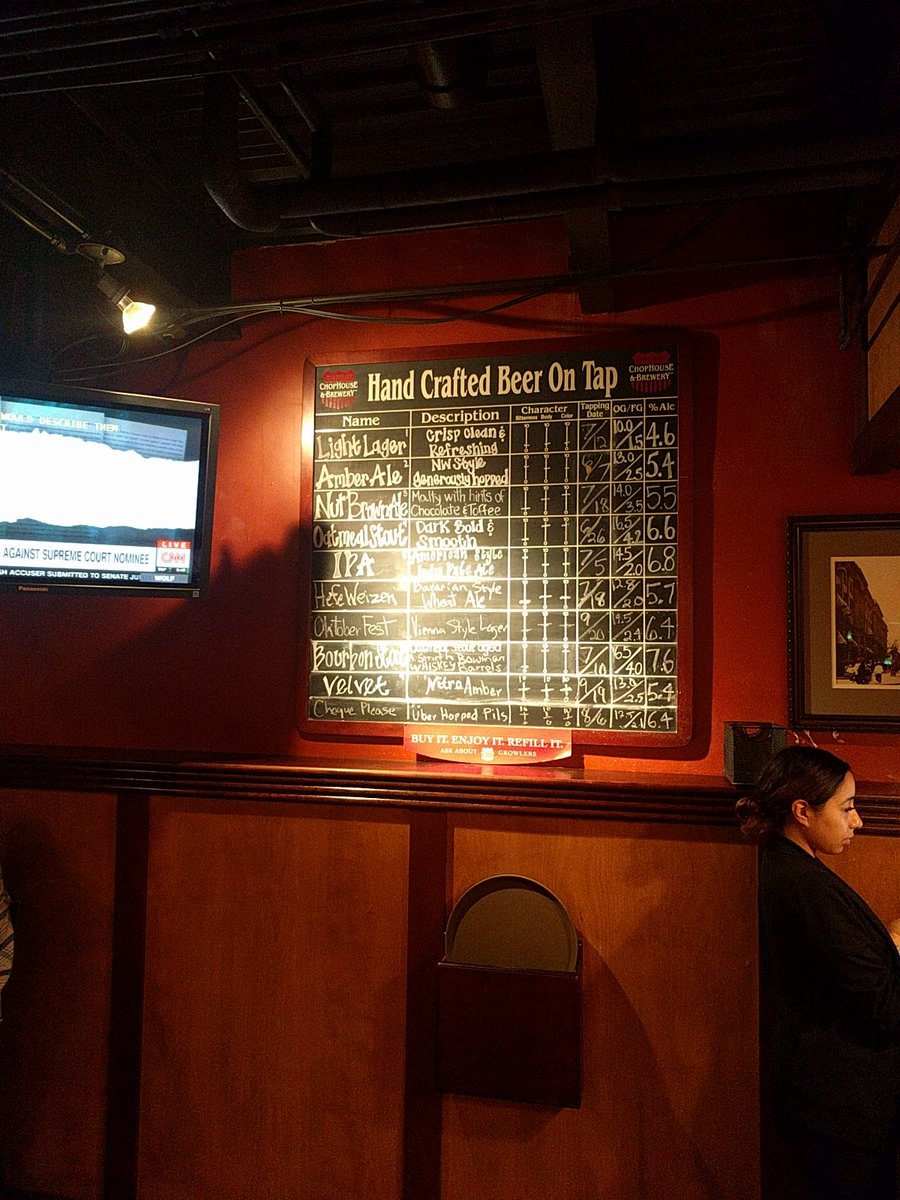 WOULD DESCRIBE THEM
AGAINST SUPREME COURT NOMINEE
LIVE
CNN
SH ACCUSER SUBMITTED TO SENATE JU
WOLF
Panasonic
CHOPHOUSE
& BREWERY
Hand Crafted Beer On Tap
CHOPHOUSE
& BREWERY
Name Description Character Bitterness Body Color Tapping Date OG/FG % Alc
Light Lager Crisp Clean & Refreshing 7/12 10.0/1.5 4.6
Amber Ale NW Style generously hopped 13.0/2.5 5.4
Nut Brown Ale Malty with hints of Chocolate & Toffee 7/18 14.0/3.5 5.5
Oatmeal Stout Dark Bold & Smooth 6/26 16.5/4.2 6.6
IPA American Style India Pale Ale 14.5/2.0 6.8
Hefe Weizen Bavarian Style Wheat Ale 12.8/2.0 5.7
Oktoberfest Vienna Style Lager 9/20 14.5/2.4 6.4
Bourbon Stout Oatmeal Stout aged in Smith Bowman Whiskey Barrels 7/10 6.5/4.0 7.6
Velvet Nitro Amber 9/19 13.0/2.5 5.4
Cheque Please Über Hopped Pils 8/6 6.4
BUY IT. ENJOY IT. REFILL IT.
ASK ABOUT GROWLERS